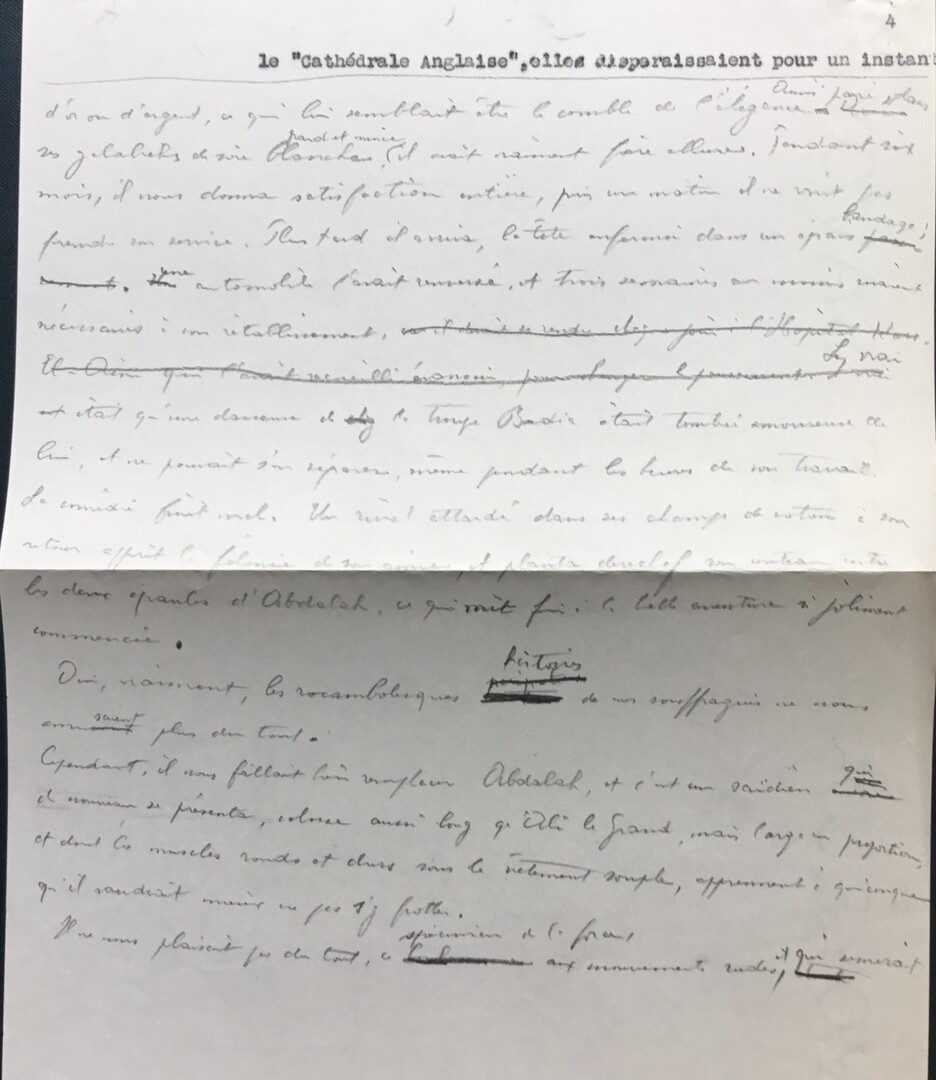 4
le "Cathédrale Anglaise", elles disparaissaient pour un instant
d'or ou d'argent, ce qui lui semblait être le comble de l'élégance. Ainsi paré dans
ses gelabiehs de soie blanche, grand et mince, il avait vraiment fière allure. Pendant six
mois, il nous donna satisfaction entière, puis un matin il ne vint pas
prendre son service. Plus tard il arriva, la tête enfermée dans un épais bandage;
une automobile l'avait renversé, et trois semaines au moins étaient
nécessaires à son rétablissement, et il devait se rendre chaque jour à l'Hôpital Kasr-
El-Aini qui l'avait recueilli évanoui, pour changer le pansement. Le vrai
était qu'une danseuse de la troupe Badia était tombée amoureuse de
lui, et ne pouvait s'en séparer, même pendant les heures de son travail.
La comédie finit mal. Un rival attardé dans ses champs de coton à son
retour apprit la félonie de son amie, et planta son couteau entre
les deux épaules d'Abdalah, ce qui mit fin à la belle aventure si joliment
commencée.
Oui, vraiment, les rocambolesques histoires de nos souffraguis ne nous
amusaient plus du tout.
Cependant, il nous fallait bien remplacer Abdalah, et c'est un saïdien qui
de nouveau se présenta, colosse aussi long qu'Ali le Grand, mais large en proportion,
et dont les muscles ronds et durs sous le vêtement souple, apprennent à quiconque
qu'il vaudrait mieux ne pas s'y frotter.
Il ne nous plaisait pas du tout, ce spécimen de la force, aux mouvements rudes, et qui semait